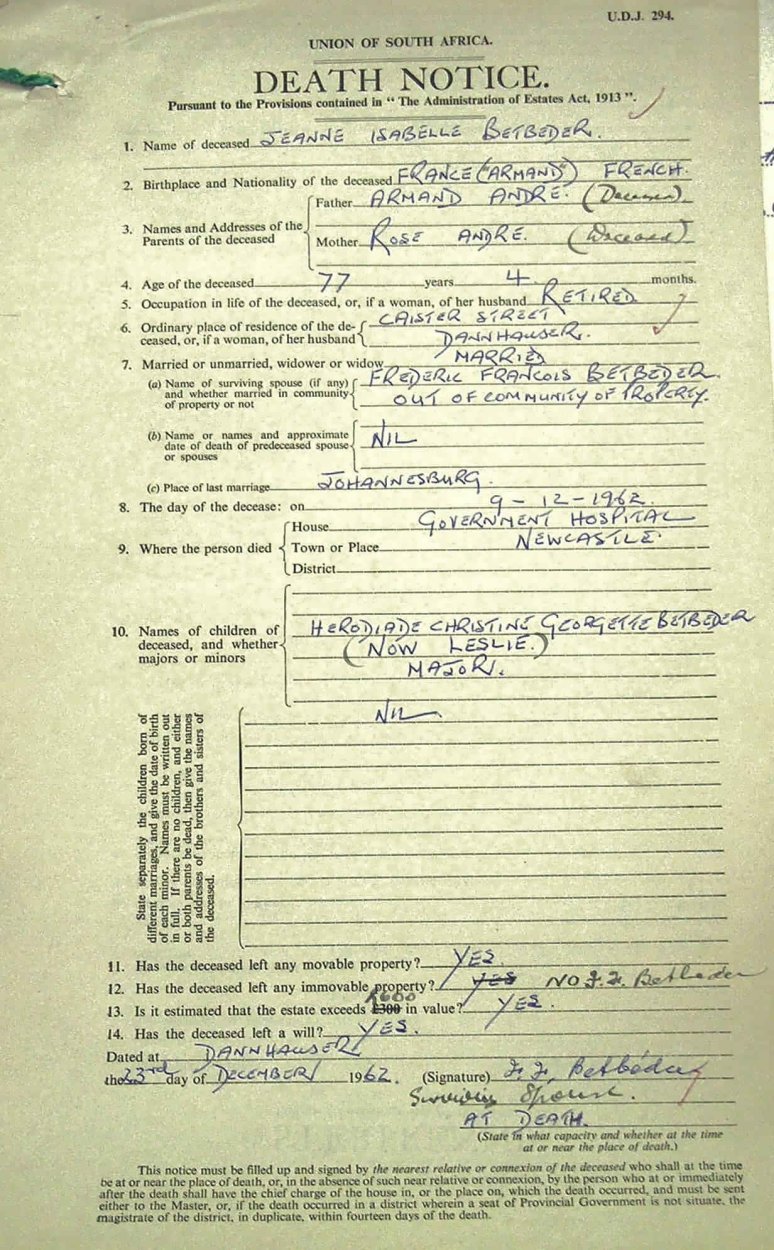 U.D.J. 294.
UNION OF SOUTH AFRICA.
DEATH NOTICE.
Pursuant to the Provisions contained in "The Administration of Estates Act, 1913".
1. Name of deceased JEANNE ISABELLE BETBEDER.
2. Birthplace and Nationality of the deceased FRANCE ("ARMAND") FRENCH.
3. Names and Addresses of the Parents of the deceased
Father ARMAND ANDRE. (Deceased).
Mother ROSE ANDRE. (Deceased)
4. Age of the deceased 77 years 4 months.
5. Occupation in life of the deceased, or, if a woman, of her husband RETIRED
6. Ordinary place of residence of the de-
ceased, or, if a woman, of her husband
CAISTER STREET
DANNHAUSER.
7. Married or unmarried, widower or widow MARRIED
(a) Name of surviving spouse (if any)
and whether married in community
of property or not
FREDERIC FRANCOIS BETBEDER.
OUT OF COMMUNITY OF PROPERTY.
(b) Name or names and approximate
date of death of predeceased spouse
or spouses
NIL
(c) Place of last marriage JOHANNESBURG.
8. The day of the decease: on 9-12-1962.
9. Where the person died
House GOVERNMENT HOSPITAL
Town or Place NEWCASTLE.
District
10. Names of children of
deceased, and whether
majors or minors
HERODIADE CHRISTINE GEORGETTE BETBEDER
(NOW LESLIE.)
MAJOR.
NIL.
State separately the children born of
different marriages, and give the date of birth
of each minor. Names must be written out
in full. If there are no children, and either
or both parents be dead, then give the names
and addresses of the brothers and sisters of
the deceased.
11. Has the deceased left any movable property? YES
12. Has the deceased left any immovable property? YES NO F. F. Betbeder
R600
13. Is it estimated that the estate exceeds £300 in value? YES.
14. Has the deceased left a will? YES.
Dated at DANNHAUSER
the 23rd day of DECEMBER 1962. (Signature) F. F. Betbéder
Surviving Spouse.
AT DEATH.
(State in what capacity and whether at the time
at or near the place of death.)
This notice must be filled up and signed by the nearest relative or connexion of the deceased who shall at the time
be at or near the place of death, or, in the absence of such near relative or connexion, by the person who at or immediately
after the death shall have the chief charge of the house in, or the place on, which the death occurred, and must be sent
either to the Master, or, if the death occurred in a district wherein a seat of Provincial Government is not situate, the
magistrate of the district, in duplicate, within fourteen days of the death.